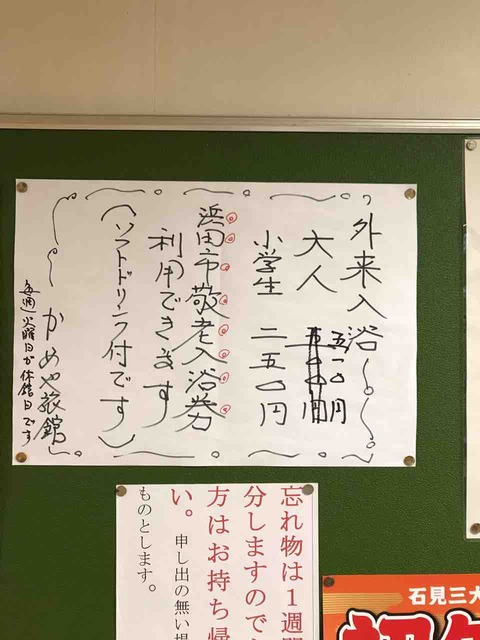 外来入浴
大人 五一〇円
小学生 二五〇円
浜田市敬老入浴券
利用できます
(ソフトドリンク付です)
かめや旅館
毎週火曜日が休館日です
忘れ物は1週間
分しますので
方はお持ち帰
い。申し出の無い場
ものとします。
石見三大